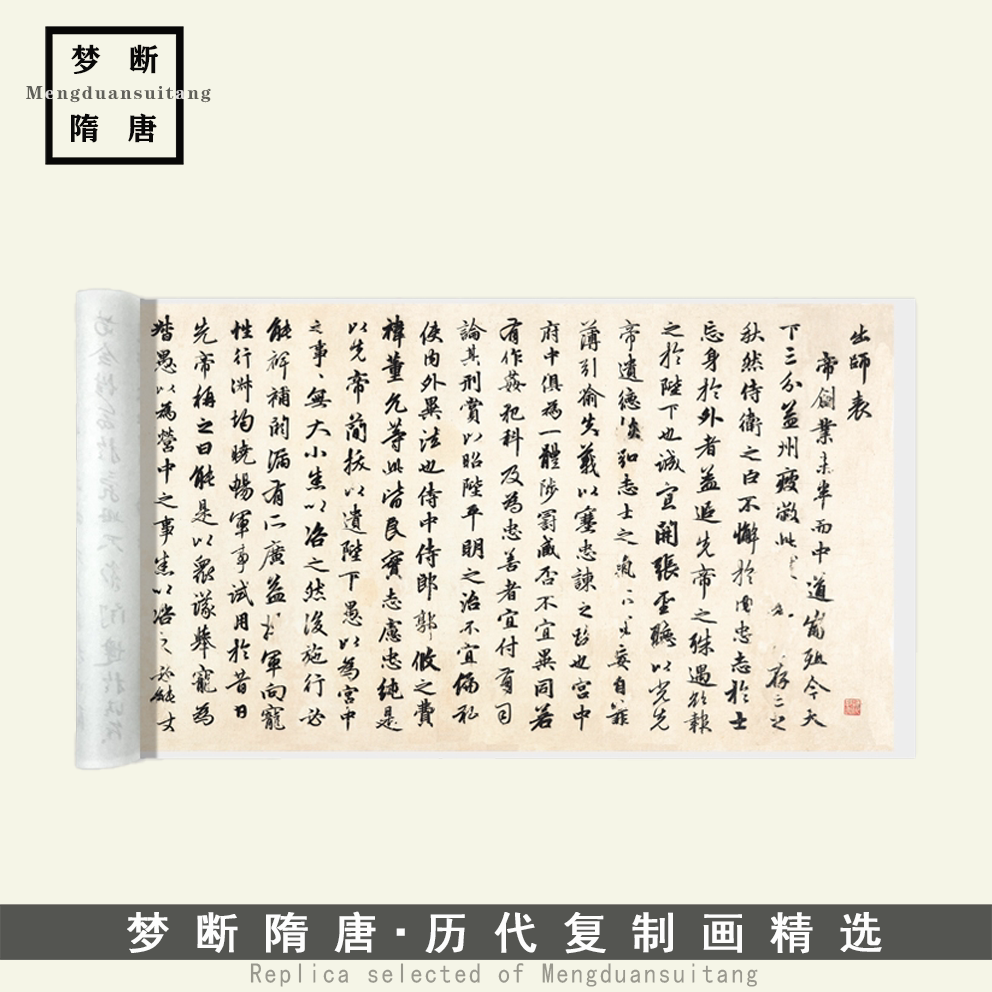 梦断
Mengduansuitang
隋唐
出師表
帝創業未半而中道崩殂今天
下三分益州疲敝此存亡之
秋然侍衛之臣不懈於內忠志於士
忘身於外者蓋追先帝之殊遇欲報
之於陛下也誠宜開張聖聽以光先
帝遺德恢弘志士之氣不宜妄自菲
薄引喻失義以塞忠諫之路也宮中
府中俱為一體陟罰臧否不宜異同若
有作姦犯科及為忠善者宜付有司
論其刑賞以昭陛平明之治不宜偏私
使內外異法也侍中侍郎郭攸之費
禕董允等此皆良實志慮忠純是
以先帝簡拔以遺陛下愚以為宮中
之事〻無大小悉以咨之然後施行必
能裨補闕漏有所廣益將軍向寵
性行淑均曉暢軍事試用於昔日
先帝稱之曰能是以眾議舉寵為
督愚以為營中之事悉以咨之必能
梦断隋唐·历代复制画精选
Replica selected of Mengduansuitang